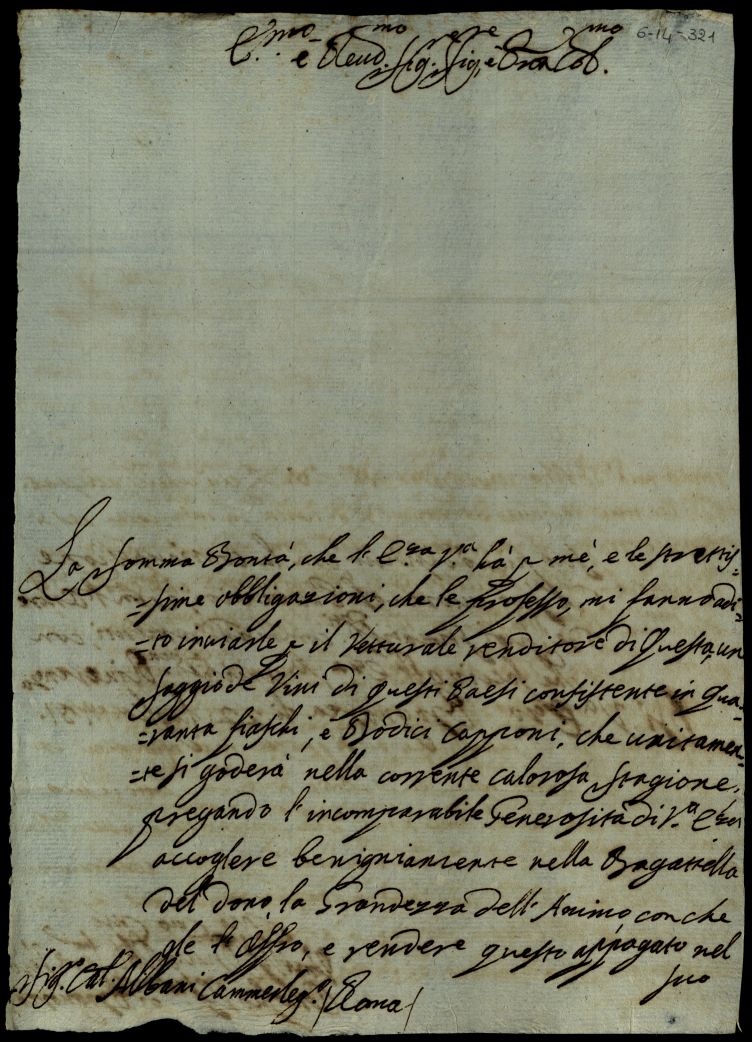 6-14-321
E.mo e Reud.mo Sig.re Sig.re e Pron Col.mo
La somma Bontà, che l'E.za V.a hà p mè, e le strettis=
=sime obbligazioni, che le professo, mi fanno adi=
=to inviarle p il Vetturale renditore di questa, un
saggio de Vini di questi Paesi consistente in qua=
=ranta fiaschi, e Dodici Capponi, che unitamen=
=te si goderà nella corrente calorosa stagione,
pregando l'incomparabile Generosità di V.a E.za
accoglere benigniamente nella Bagattella
del dono, la Grandezza dell'Animo con che
gle l'offro, e rendere questo appagato nel
suo
Sig.r Cal. Albani Cammerleg.o /Roma/